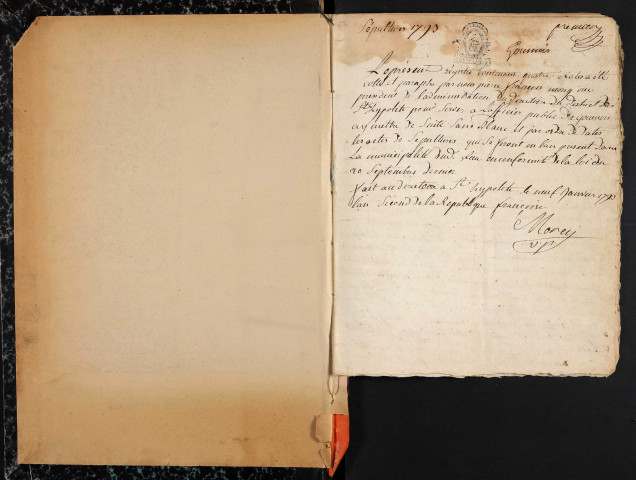 Sepulture 1793 premier
Goumois
Le présent régitre contenant quatre a été
cotté et paraphé par nous pierre françois morey vice
président de l'administration du directoire du district de
St hypolite pour servir a l'officier public de Goumois
a y mettre de suite sans blanc et par ordre de dates
les actes de sepultures qui se feront en l'an present dans
la municipalité dud. lieu en conformité de la loi du
20 Septembre dernier
fait au directoire a St hypolite le neuf Janvier 1793
l'an Second de la Republique françoise
Morey
v. p.